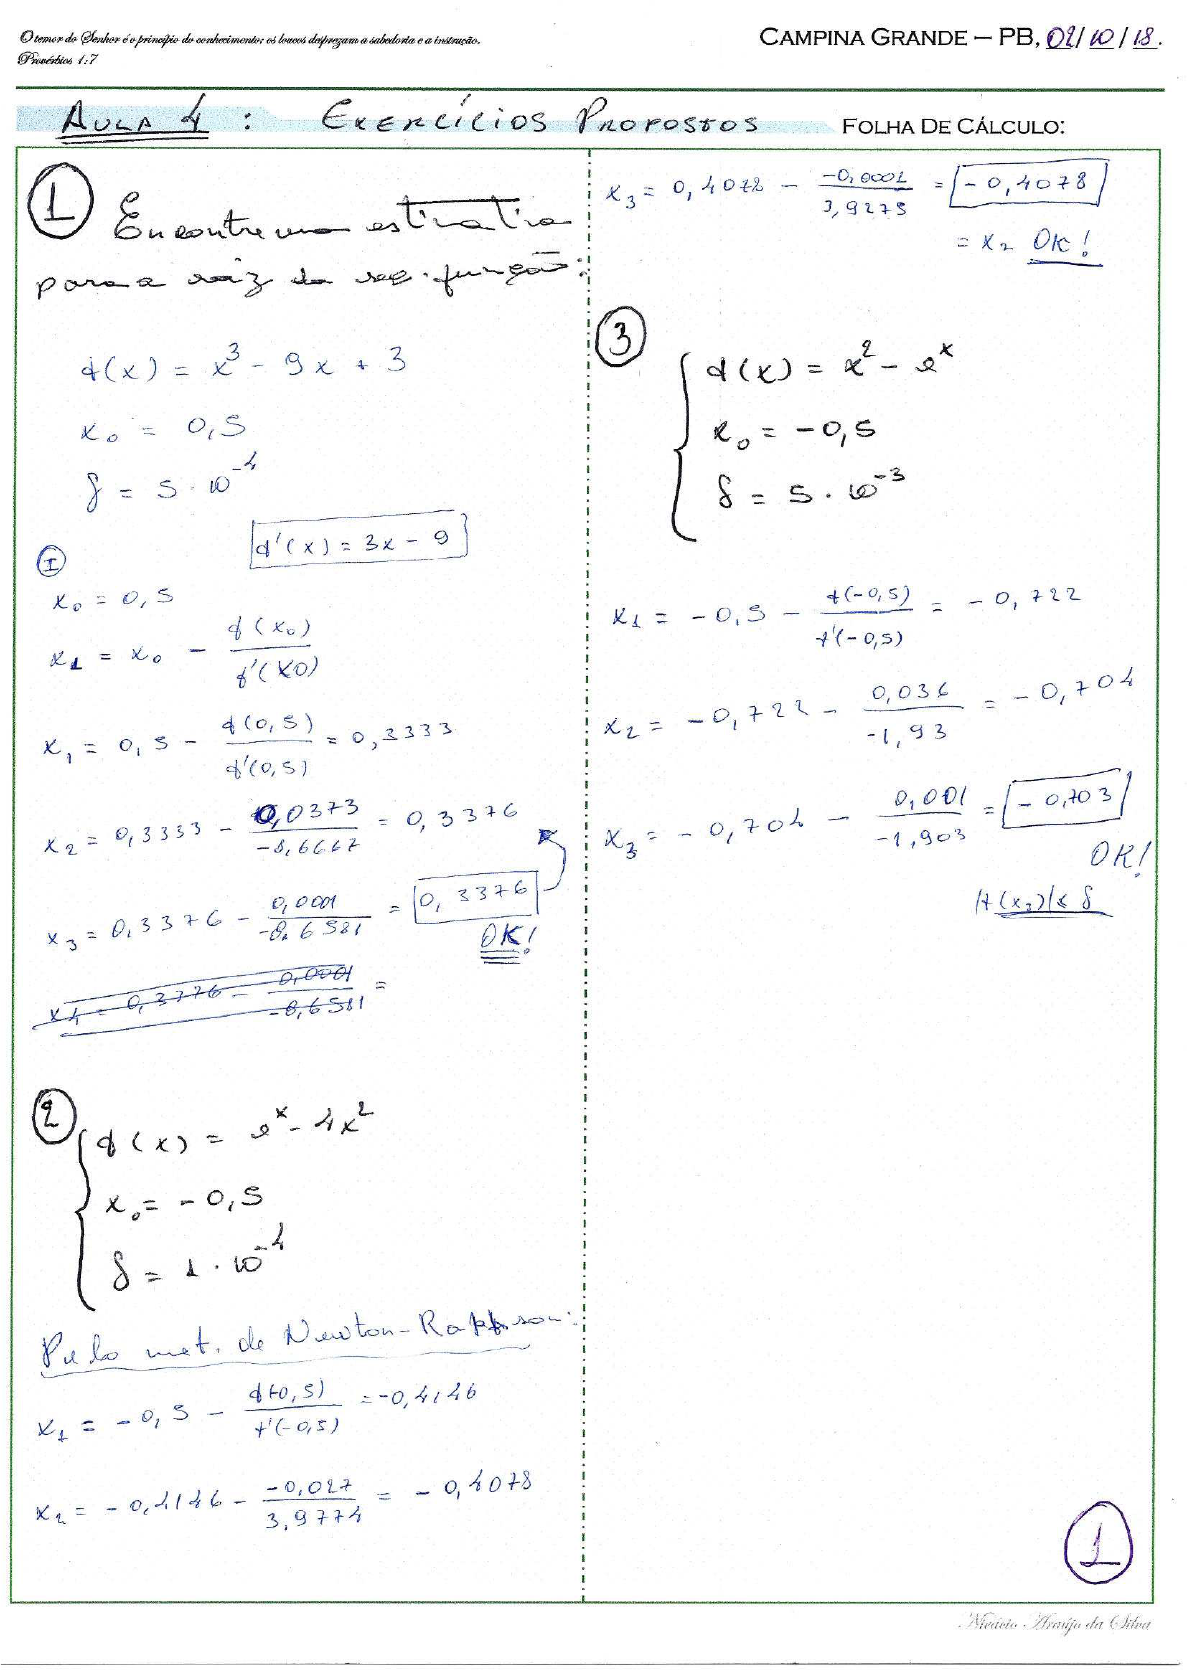 O temor do Senhor é o princípio do conhecimento; os loucos desprezam a sabedoria e a instrução.
Provérbios 1:7
CAMPINA GRANDE – PB, 02/10/18.
AULA 4 : EXERCÍCIOS PROPOSTOS
FOLHA DE CÁLCULO:
1 Encontre uma estimativa
para a raiz da seg. função:
f(x) = x³ - 9x + 3
x₀ = 0,5
δ = 5 · 10⁻⁴
f'(x) = 3x - 9
I
x₀ = 0,5
x₁ = x₀ - f(x₀)/f'(x0)
x₁ = 0,5 - f(0,5)/f'(0,5) = 0,3333
x₂ = 0,3333 - 0,0373/-8,6667 = 0,3376
x₃ = 0,3376 - 0,0001/-8,6581 = 0,3376
OK!
x₄ = 0,3776 - 0,0001/-8,6581 =
2
f(x) = eˣ - 4x²
x₀ = - 0,5
δ = 1 · 10⁻⁴
Pelo met. de Newton-Raphson:
x₁ = - 0,5 - f(-0,5)/f'(-0,5) = -0,4146
x₂ = - 0,4146 - -0,027/3,9774 = - 0,4078
x₃ = 0,4078 - -0,0001/3,9275 = - 0,4078
= x₂ OK!
3
f(x) = x² - eˣ
x₀ = - 0,5
δ = 5 · 10⁻³
x₁ = - 0,5 - f(-0,5)/f'(-0,5) = - 0,722
x₂ = - 0,722 - 0,036/-1,93 = - 0,704
x₃ = - 0,704 - 0,001/-1,903 = - 0,703
OK!
|f(x₃)| ≤ δ
1
Nicácio Araújo da Silva